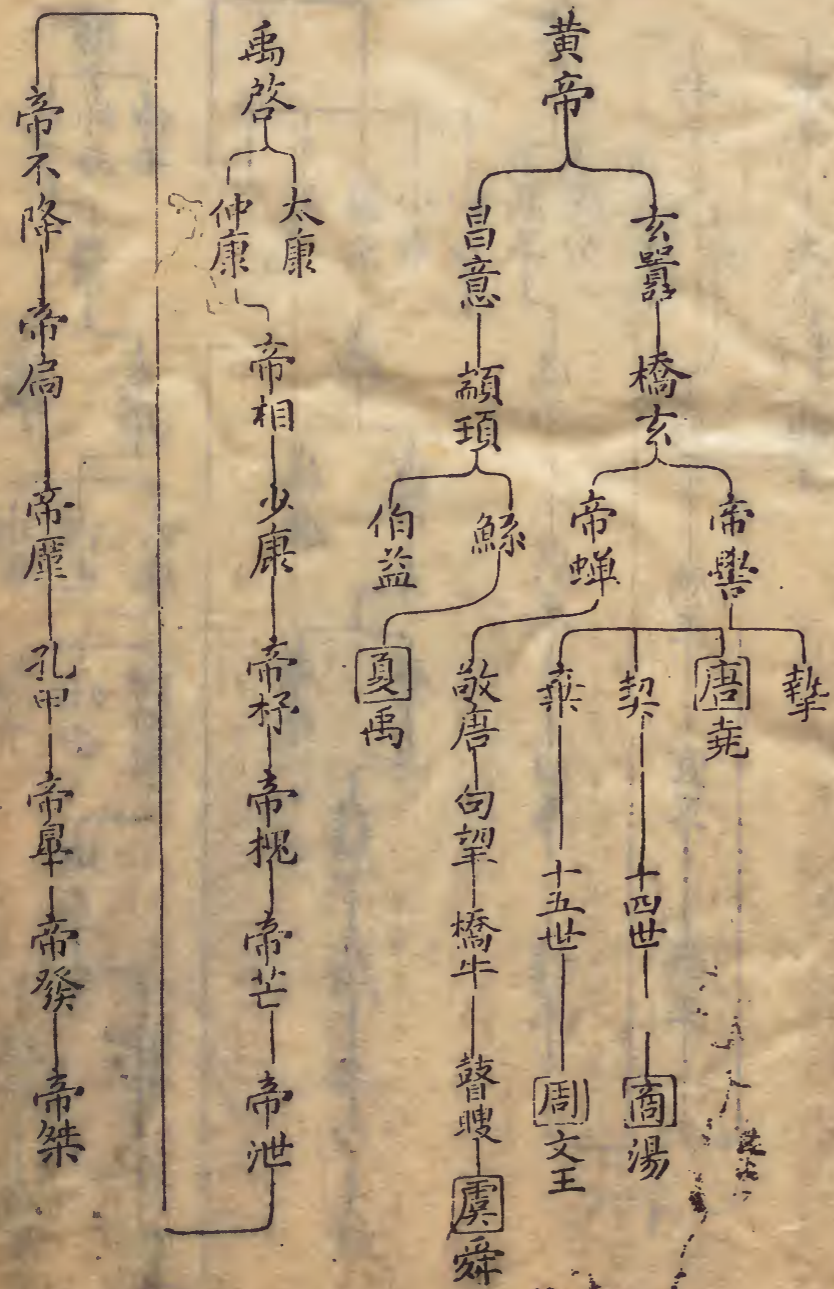 黃帝
玄囂
橋玄
帝嚳
摯
唐堯
契
十四世
商湯
棄
十五世
周文王
帝蟬
敬唐
句望
橋牛
瞽瞍
虞舜
昌意
顓頊
鯀
夏禹
伯益
禹啓
太康
仲康
帝相
少康
帝杼
帝槐
帝芒
帝泄
帝不降
帝扃
帝廑
孔甲
帝皐
帝發
帝桀